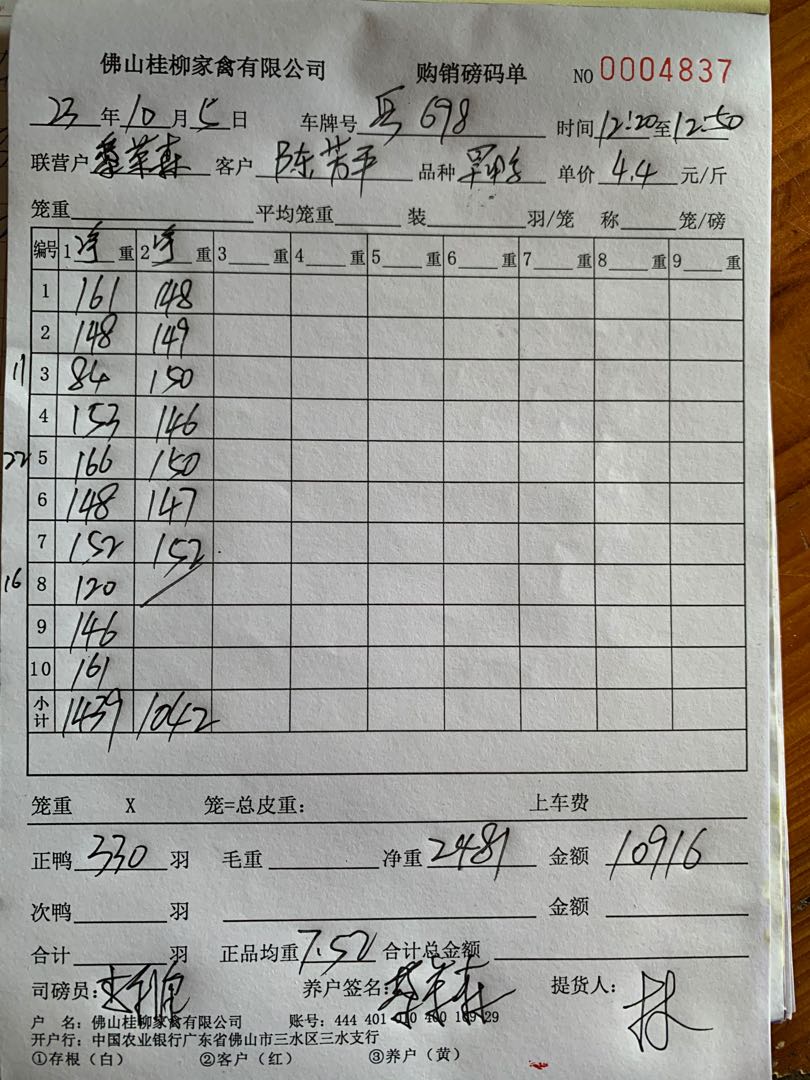 佛山桂柳家禽有限公司 购销磅码单 NO 0004837
23 年 10 月 5 日 车牌号 698 时间 12:20 至 12:50
联营户 客户 陈芳平 品种 单价 4.4 元/斤
笼重 平均笼重 装 羽/笼 称 笼/磅
编号 1 净 重 2 净 重 3 重 4 重 5 重 6 重 7 重 8 重 9 重
1 161 148
2 148 149
11 3 84 150
4 153 146
22 5 166 150
6 148 147
7 152 152
16 8 120
9 146
10 161
小计 1439 1042
笼重 X 笼=总皮重: 上车费
正鸭 330 羽 毛重 净重 2481 金额 10916
次鸭 羽 金额
合计 羽 正品均重 7.52 合计总金额
司磅员: 养户签名: 提货人:
户 名: 佛山桂柳家禽有限公司 账号: 444 401 400 29
开户行: 中国农业银行广东省佛山市三水区三水支行
①存根(白) ②客户(红) ③养户(黄)